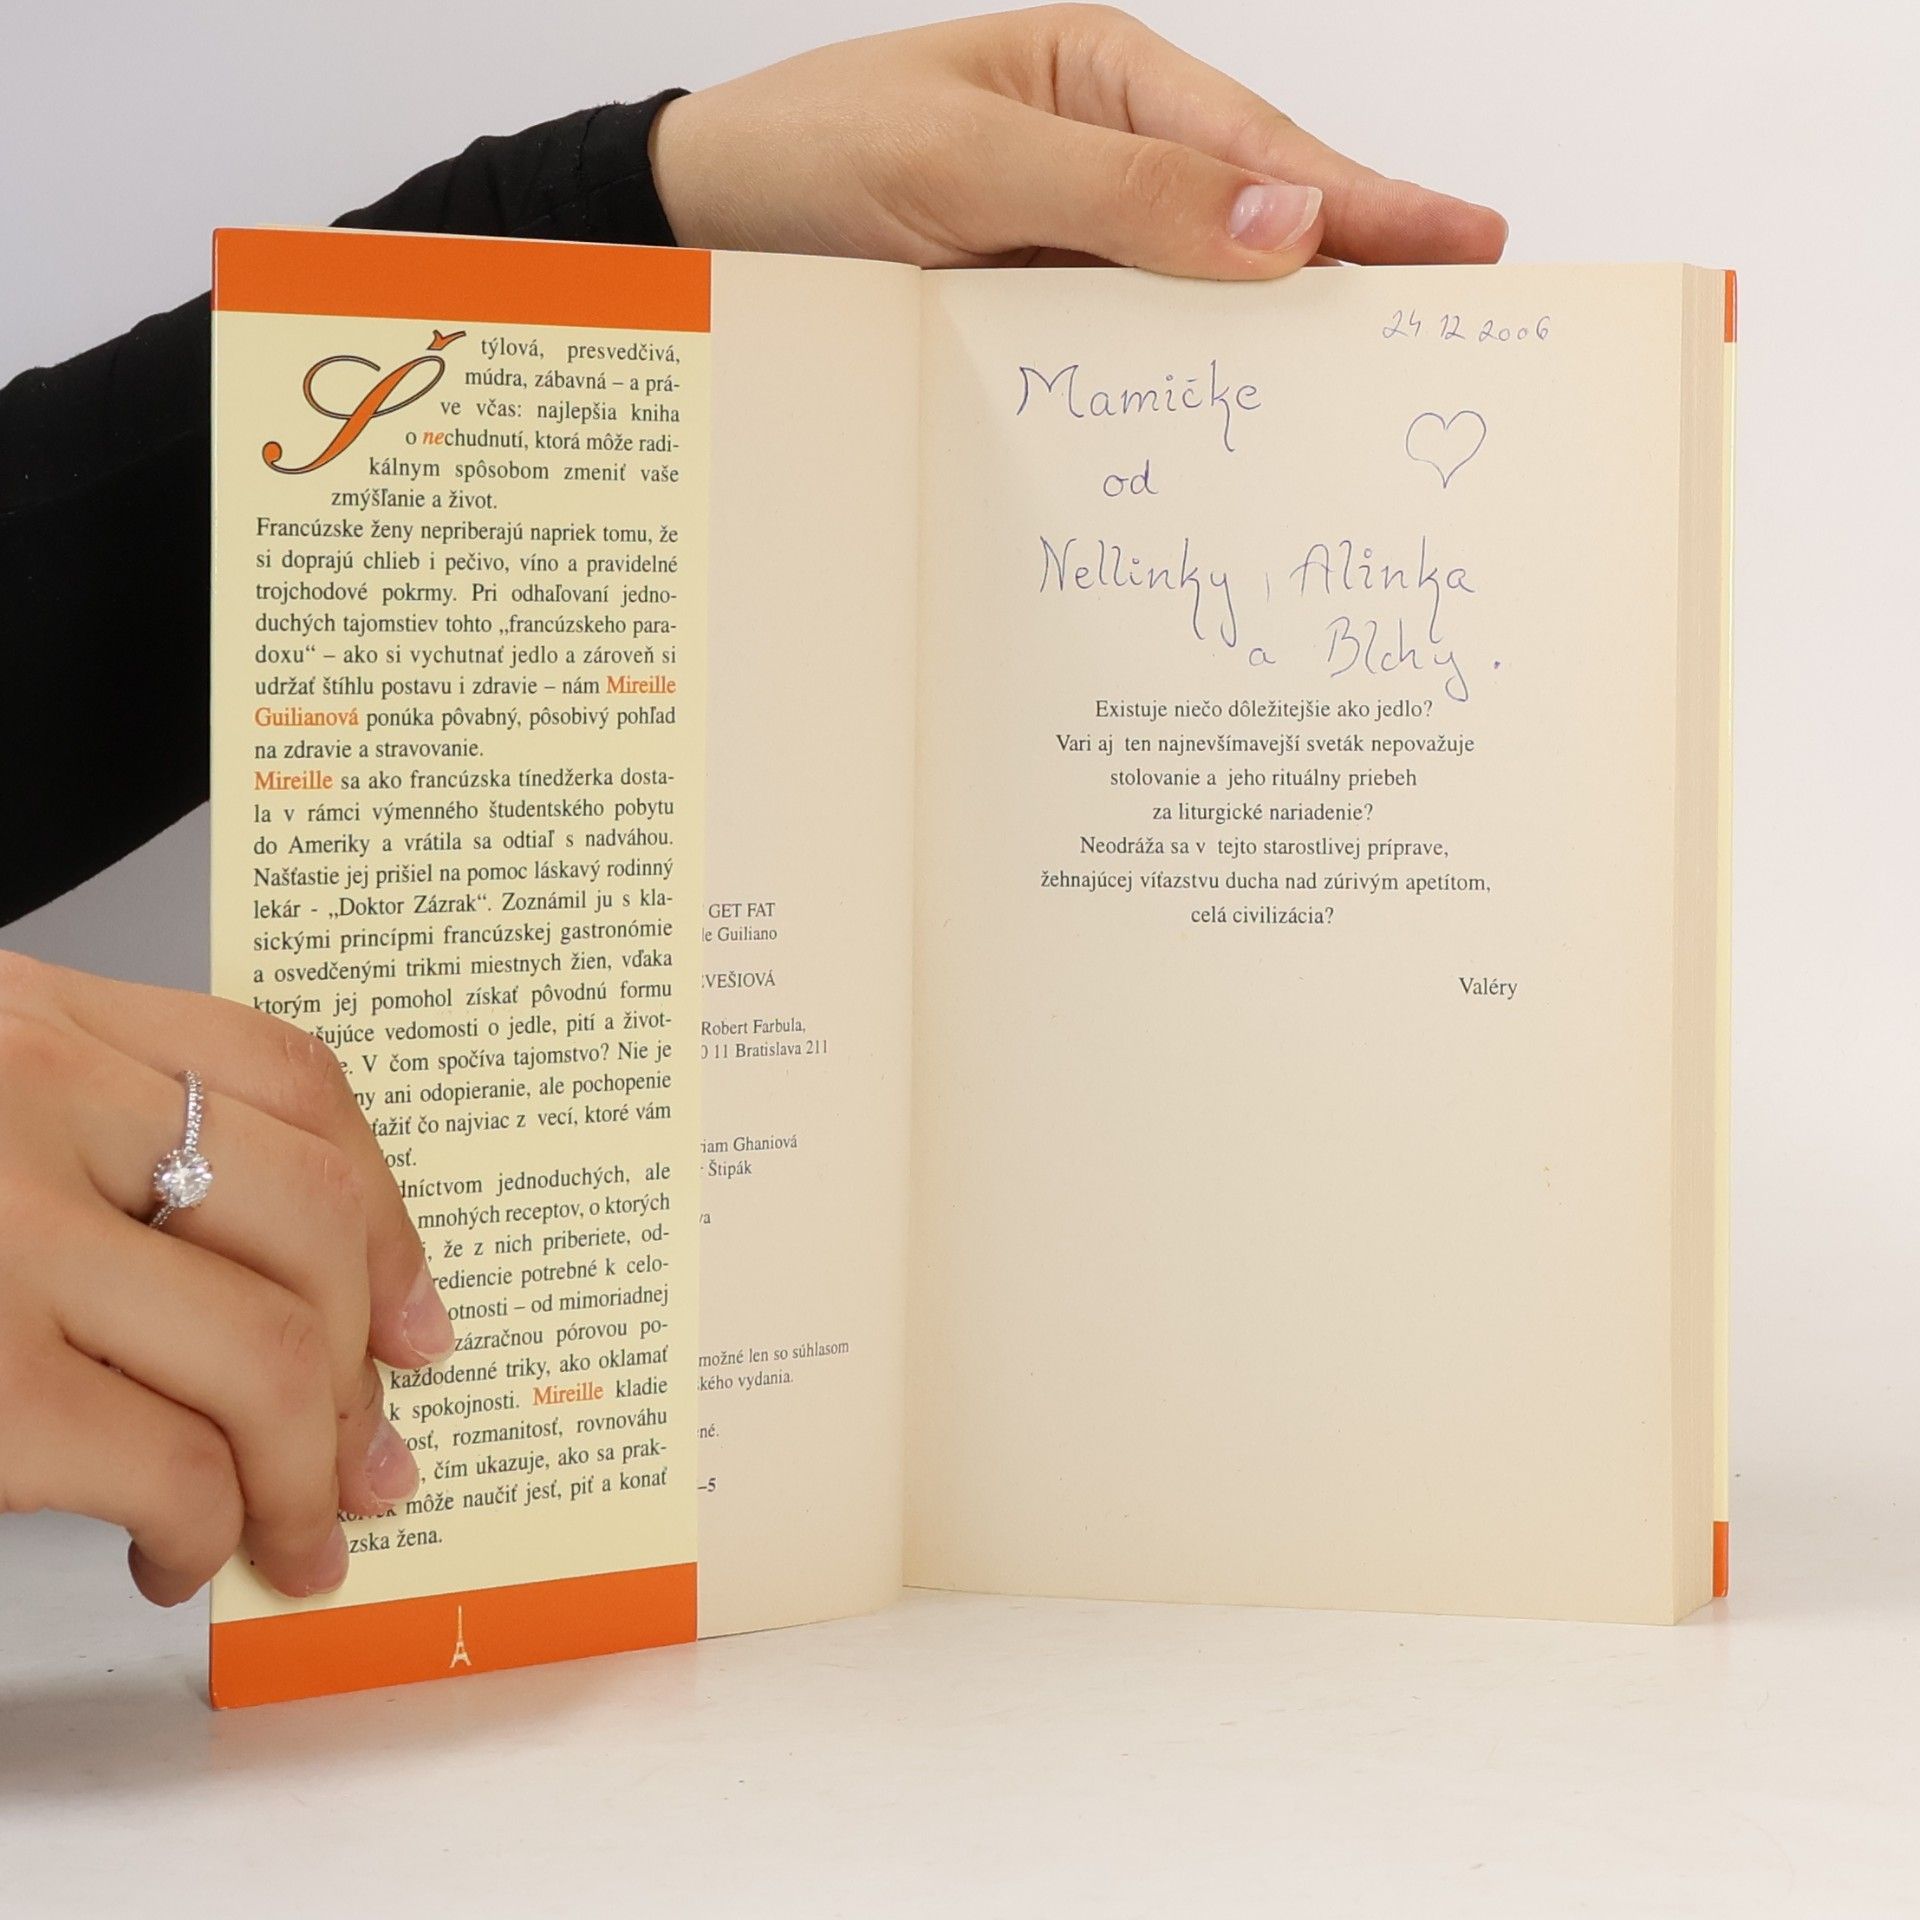 Štýlová, presvedčivá,
múdra, zábavná – a prá-
ve včas: najlepšia kniha
o nechudnutí, ktorá môže radi-
kálnym spôsobom zmeniť vaše
zmýšľanie a život.
Francúzske ženy nepriberajú napriek tomu, že
si doprajú chlieb i pečivo, víno a pravidelné
trojchodové pokrmy. Pri odhaľovaní jedno-
duchých tajomstiev tohto „francúzskeho para-
doxu“ – ako si vychutnať jedlo a zároveň si
udržať štíhlu postavu i zdravie – nám Mireille
Guilianová ponúka pôvabný, pôsobivý pohľad
na zdravie a stravovanie.
Mireille sa ako francúzska tínedžerka dosta-
la v rámci výmenného študentského pobytu
do Ameriky a vrátila sa odtiaľ s nadváhou.
Našťastie jej prišiel na pomoc láskavý rodinný
lekár - „Doktor Zázrak“. Zoznámil ju s kla-
sickými princípmi francúzskej gastronómie
a osvedčenými trikmi miestnych žien, vďaka
ktorým jej pomohol získať pôvodnú formu
šujúce vedomosti o jedle, pití a život-
e. V čom spočíva tajomstvo? Nie je
ny ani odopieranie, ale pochopenie
ťažiť čo najviac z vecí, ktoré vám
osť.
dníctvom jednoduchých, ale
mnohých receptov, o ktorých
i, že z nich priberiete, od-
rediencie potrebné k celo-
otnosti – od mimoriadnej
zázračnou pórovou po-
každodenné triky, ako oklamať
k spokojnosti. Mireille kladie
osť, rozmanitosť, rovnováhu
, čím ukazuje, ako sa prak-
môže naučiť jesť, piť a konať
zska žena.
GET FAT
le Guiliano
VEŠIOVÁ
Robert Farbula,
0 11 Bratislava 211
riam Ghaniová
r Štipák
va
možné len so súhlasom
kého vydania.
né.
–5
24 12 2006
Mamičke
od
Nellinky, Alinka
a Blchy.
Existuje niečo dôležitejšie ako jedlo?
Vari aj ten najnevšímavejší sveták nepovažuje
stolovanie a jeho rituálny priebeh
za liturgické nariadenie?
Neodráža sa v tejto starostlivej príprave,
žehnajúcej víťazstvu ducha nad zúrivým apetítom,
celá civilizácia?
Valéry